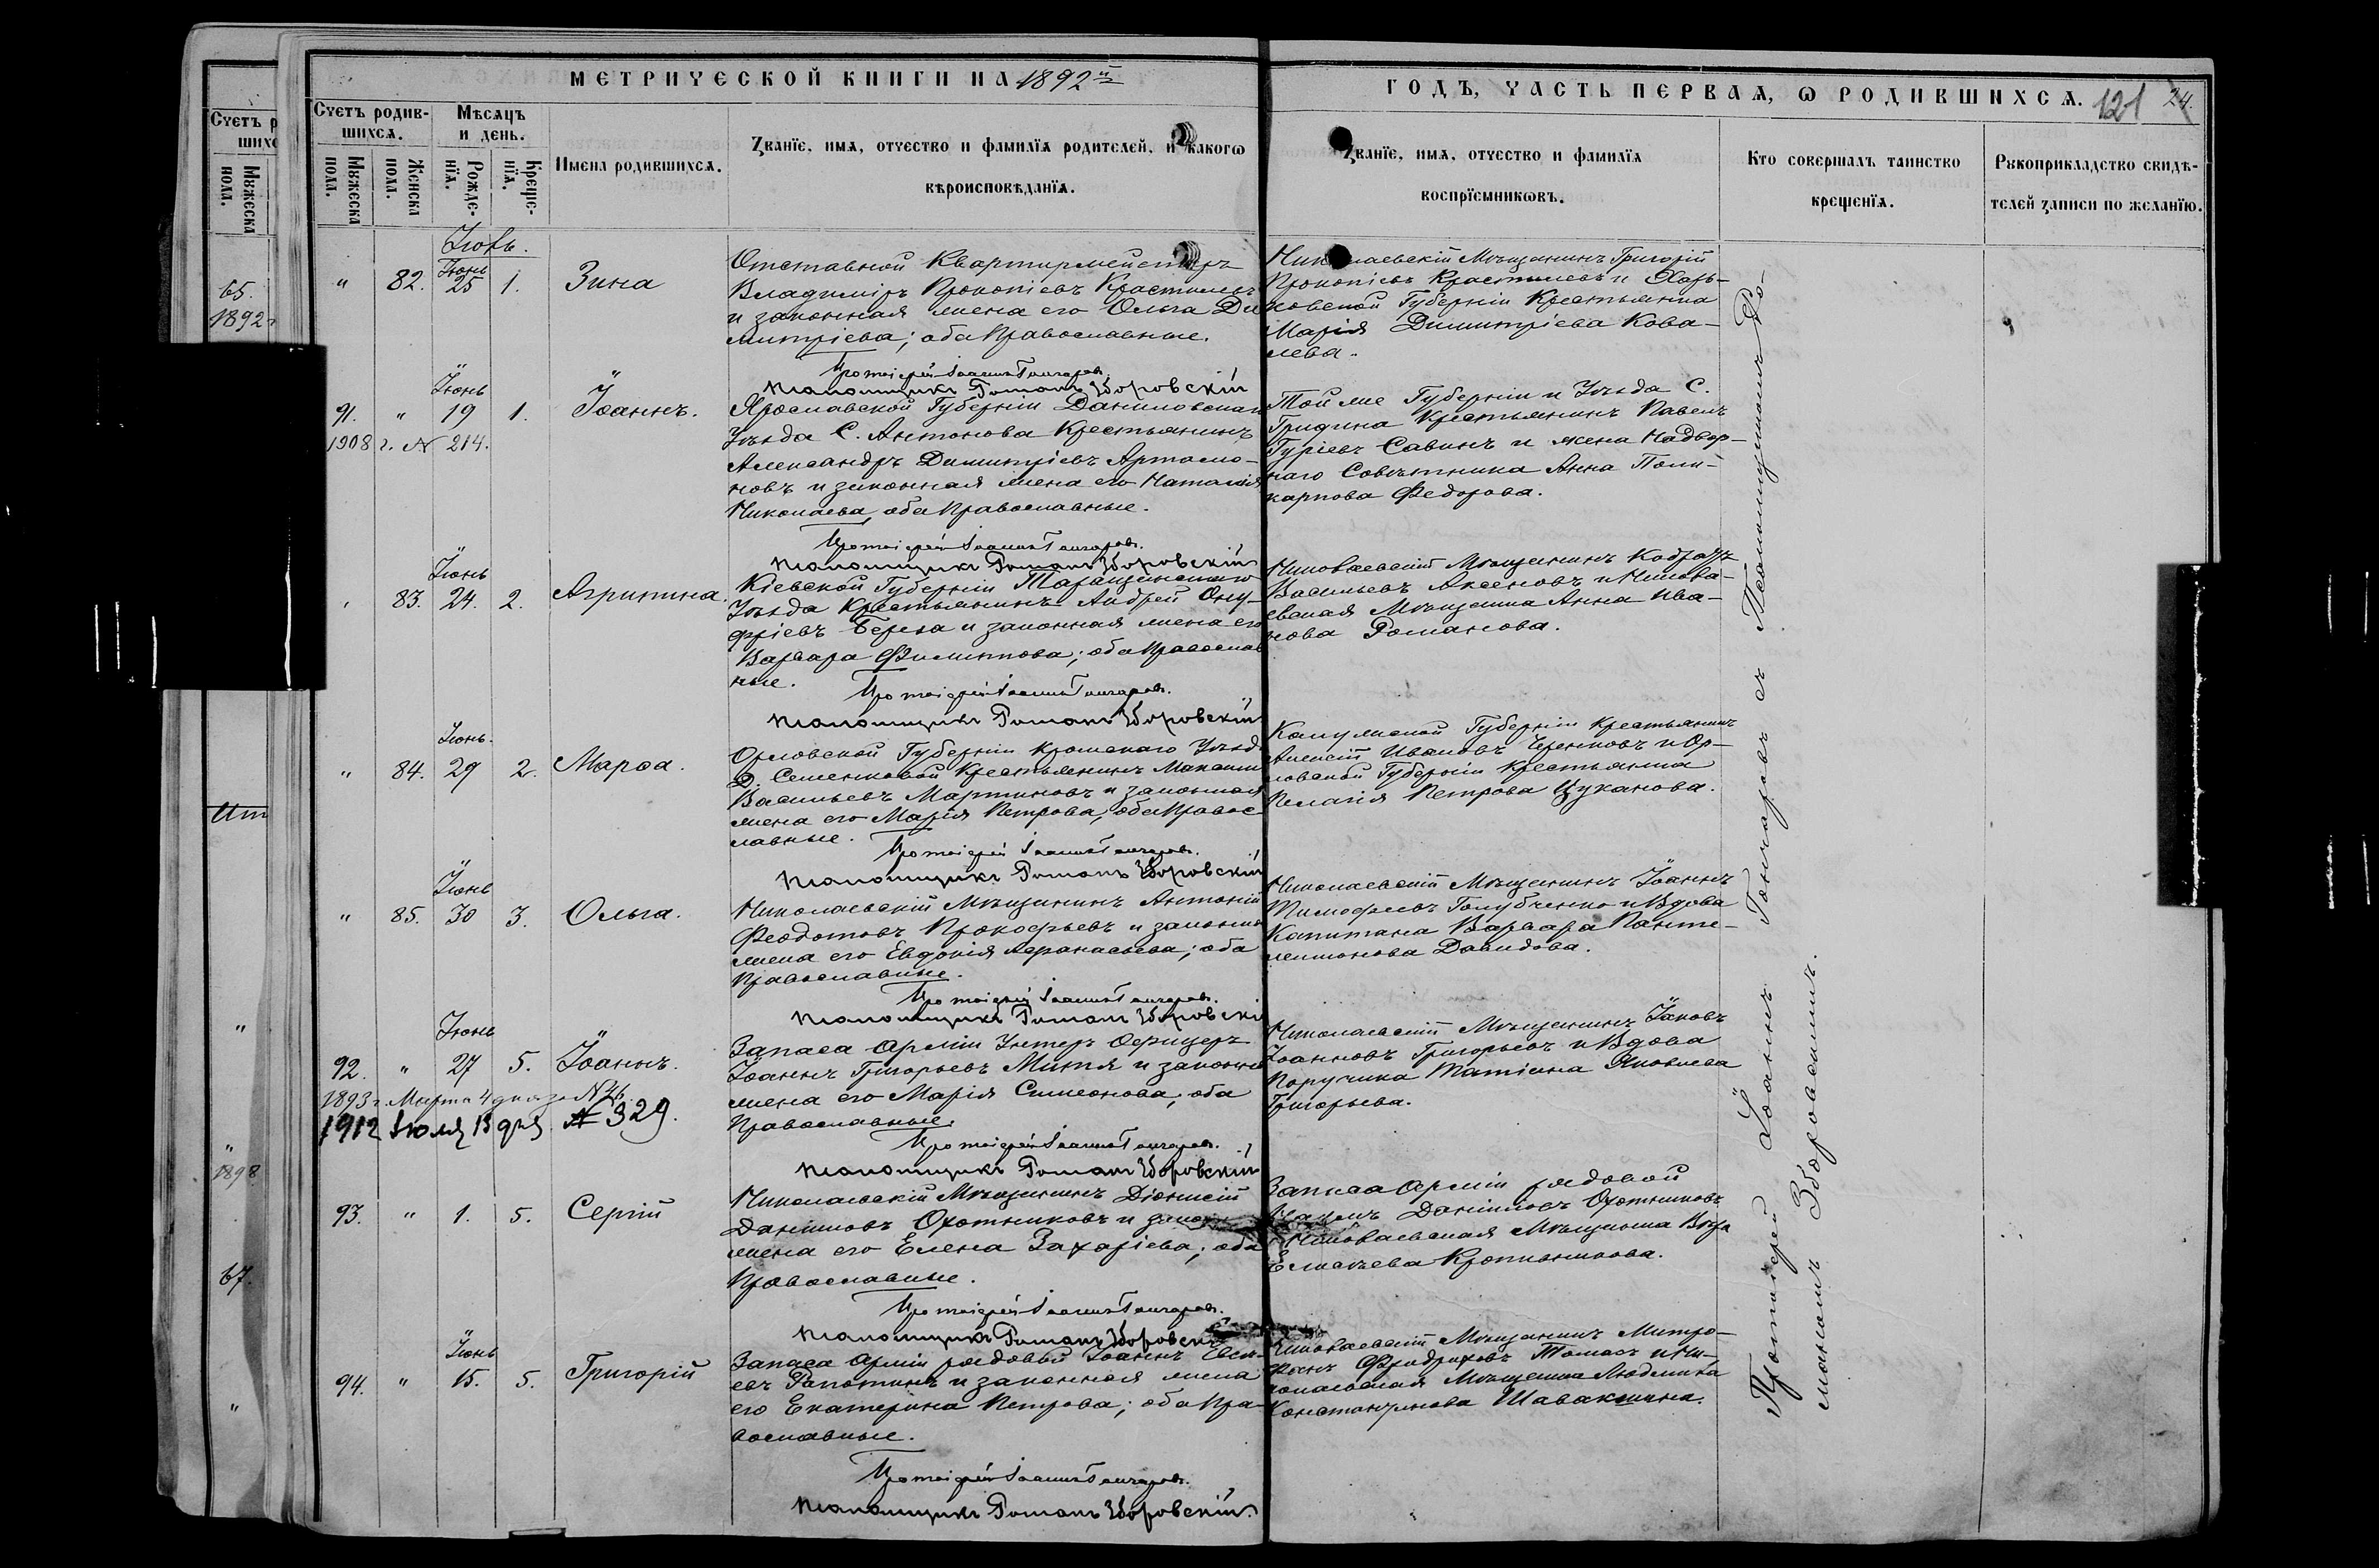 МЕТРИЧЕСКОЙ КНИГИ НА 1892й
ГОДЪ, ЧАСТЬ ПЕРВАЯ, Ѡ РОДИВШИХСЯ. 121 24.
Счетъ родив-
шихся.
Мужеска
пола.
Женска
пола.
Мѣсяцъ
и день.
Рожде-
нїя.
Креще-
нїя.
Имена родившихся.
Званїе, имя, отчество и фамилїя родителей, и какогѡ
вѣроисповѣданїя.
Званїе, имя, отчество и фамилїя
воспрїемникѡвъ.
Кто совершалъ таинство
крещенїя.
Рукоприкладство свидѣ-
телей записи по желанїю.
Іюль.
Іюнь
" 82. 25 1. Зина
Отставной Квартирмейстеръ
Владиміръ Прокопіевъ
и законная жена его Ольга Ди
митріева; оба Православные.
Протоіерей Іоаннъ Гончаровъ.
Псаломщикъ Романъ Зборовскій
Николаевскій Мѣщанинъ Григорій
Прокопіевъ и Харь-
ковской Губерніи Крестьянка
Марія Димитріева Кова-
лева.
Іюнь
91. " 19 1. Іоаннъ.
1908 г. № 214.
Ярославской Губерніи Даниловскаго
Уѣзда С. Антонова Крестьянинъ
Александръ Димитріевъ Артамо-
новъ и законная жена его Наталія
Николаева, оба Православные.
Протоіерей Іоаннъ Гончаровъ.
Псаломщикъ Романъ Зборовскій
Той же Губерніи и Уѣзда С.
Гридина Крестьянинъ Павелъ
Гуріевъ Савинъ и жена Надвор-
наго Совѣтника Анна Поли-
карпова Федорова.
Іюнь
83. 24. 2. Агрипина.
Кіевской Губерніи Таращанскаго
Уѣзда Крестьянинъ Андрей Ону-
фріевъ Береза и законная жена его
Варвара Филиппова; оба Православ
ные.
Протоіерей Іоаннъ Гончаровъ.
Псаломщикъ Романъ Зборовскій
Николаевскій Мѣщанинъ
Васильевъ Аксеновъ и Никола-
евская Мѣщанка Анна Ива-
нова Романова.
Іюнь.
" 84. 29 2. Марѳа.
Орловской Губерніи Кромскаго Уѣзда
Д. Семенковой Крестьянинъ Максимъ
Васильевъ Мартыновъ и законная
жена его Марія Петрова, оба Правос
лавные.
Протоіерей Іоаннъ Гончаровъ.
Псаломщикъ Романъ Зборовскій
Калужской Губерніи Крестьянинъ
Алексій Ивановъ и Ор-
ловской Губерніи Крестьянка
Пелагія Петрова Цуканова.
Іюнь
" 85. 30 3. Ольга.
Николаевскій Мѣщанинъ Антоній
Феодотовъ Прокофьевъ и законная
жена его Евдокія Афанасьева; оба
Православные.
Протоіерей Іоаннъ Гончаровъ.
Псаломщикъ Романъ Зборовскій
Николаевскій Мѣщанинъ Іоаннъ
Тимофеевъ Голубченко и Вдова
Капитана Варвара Панте-
леимонова Давидова.
Іюнь
92. " 27 5. Іоаннъ.
1893 г. Марта 4 дня за № 46.
1912 Іюля 13 дня № 329.
Запаса Арміи Унтеръ Офицеръ
Іоаннъ Григорьевъ Митя и законная
жена его Марія Симеонова, оба
Православные.
Протоіерей Іоаннъ Гончаровъ.
Псаломщикъ Романъ Зборовскій
Николаевскій Мѣщанинъ Іаковъ
Іоанновъ Григорьевъ и Вдова
Поручика Татіана Яковлева
Григорьева.
93. " 1. 5. Сергій
Николаевскій Мѣщанинъ Діонисій
Даніиловъ Охотниковъ и закон
жена его Елена Захаріева; оба
Православные.
Протоіерей Іоаннъ Гончаровъ.
Псаломщикъ Романъ Зборовскій
Запаса Арміи рядовой
Даніиловъ Охотниковъ
и Николаевская Мѣщанка Вѣра
Елисѣева Кропивникова.
Іюнь
94. " 15. 5. Григорій
Запаса Арміи рядовый Іоаннъ
Рапотинъ и законная жена
его Екатерина Петрова; оба Пра-
вославные.
Протоіерей Іоаннъ Гончаровъ.
Псаломщикъ Романъ Зборовскій.
Николаевскій Мѣщанинъ Митро-
фанъ Фридриховъ Томасъ и Ни-
колаевская Мѣщанка Людмила
Константинова Шавакина.
Протоіерей Іоаннъ Гончаровъ съ Псаломщикомъ Ро-
маномъ Зборовскимъ.
Счетъ р
шихс
Мужеска
пола.
65.
1892 г
Ит
"
"
1898
67.
"